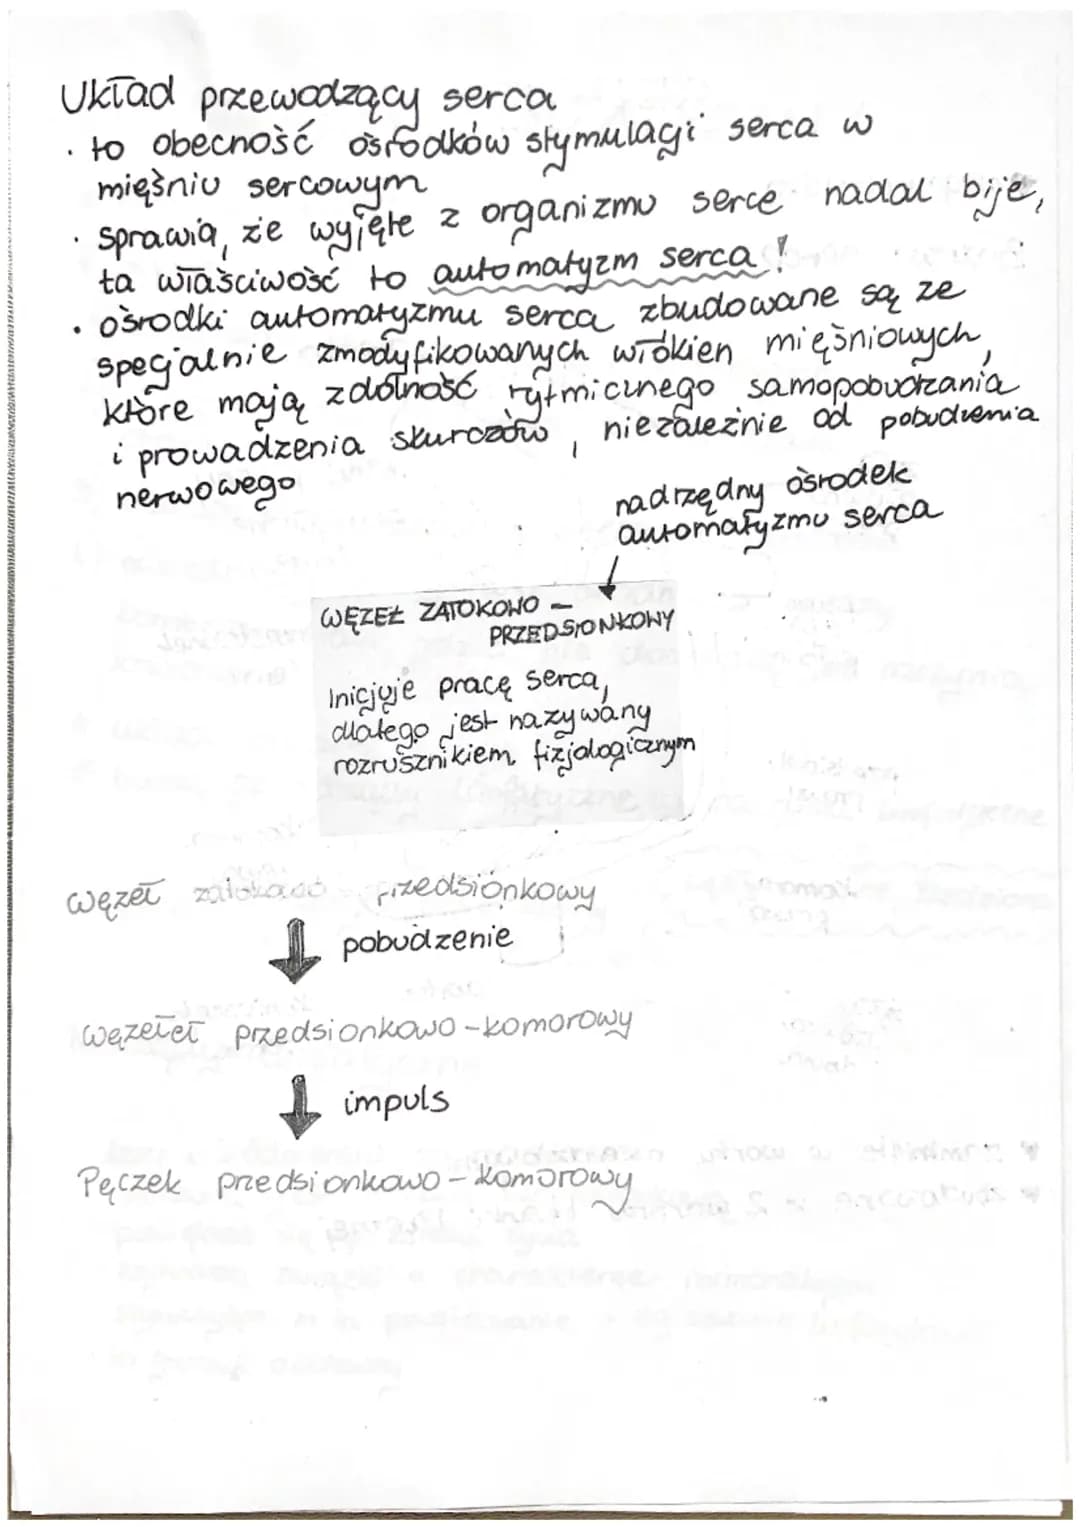 Układ przewodzący serca
· to obecność ośrodków stymulacji serca w
mięśniu sercowym
· sprawia, że wyjęte z organizmu serce nadal bije,
ta właściwość to automatyzm serca!
· ośrodki automatyzmu serca zbudowane są ze
specjalnie zmodyfikowanych włókien mięśniowych,
które mają zdolność rytmicznego samopobudzania
i prowadzenia skurczów, niezależnie od pobudzenia
nerwowego
nadrzędny ośrodek
automatyzmu serca
WĘZEŁ ZATOKOWO -
PRZEDSIONKOWY
Inicjuje pracę serca,
dlatego jest nazywany
rozrusznikiem fizjologicznym
węzeł zatokowo przedsionkowy
pobudzenie
węzełeł przedsionkowo-komorowy
impuls
Pęczek przedsionkowo-komorowy